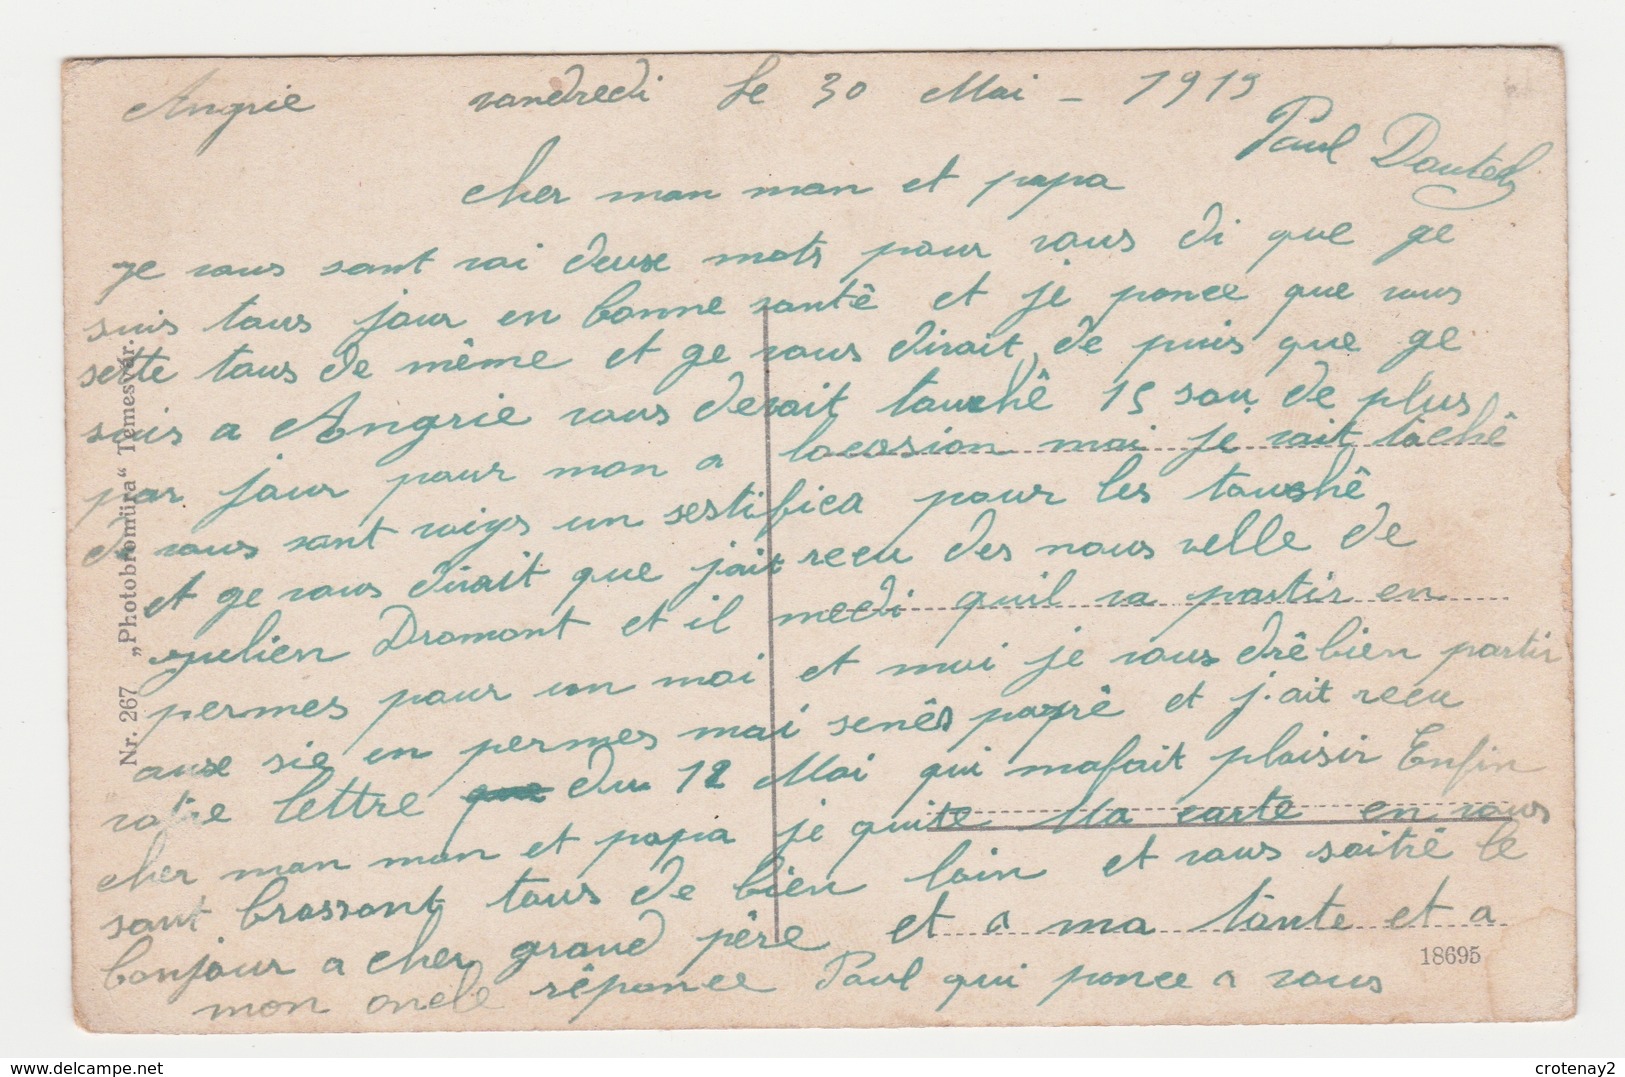 Angrie vandredi le 30 Mai - 1919
Paul Dautel
cher man man et papa
ge vous sant voi deux mots pour vous di que ge
suis tous jour en bonne santê et je ponce que vous
sette tous de même et ge vous dirait de puis que ge
suis a Angrie vous devait tauchê 15 sou de plus
par jour pour mon a locasion moi je vait tachê
de vous sant voiys un sestifica pour les toushê
et ge vous dirait que jait recu des nous velle de
julien Dromont et il medi quil va partir en
permes pour un moi et moi je vous drê bien partir
aux sie en permes mai senês payrê et j.ait recu
votre lettre du 12 Mai qui mafait plaisir Enfin
cher man man et papa je quite Ma carte en vous
sant brassant tous de bien loin et vous saitré le
bonjour a cher grand père et a ma tante et a
mon oncle réponce Paul qui ponce a vous
Nr. 267 „Photobromüra“ Temesvár.
18695
crotenay2